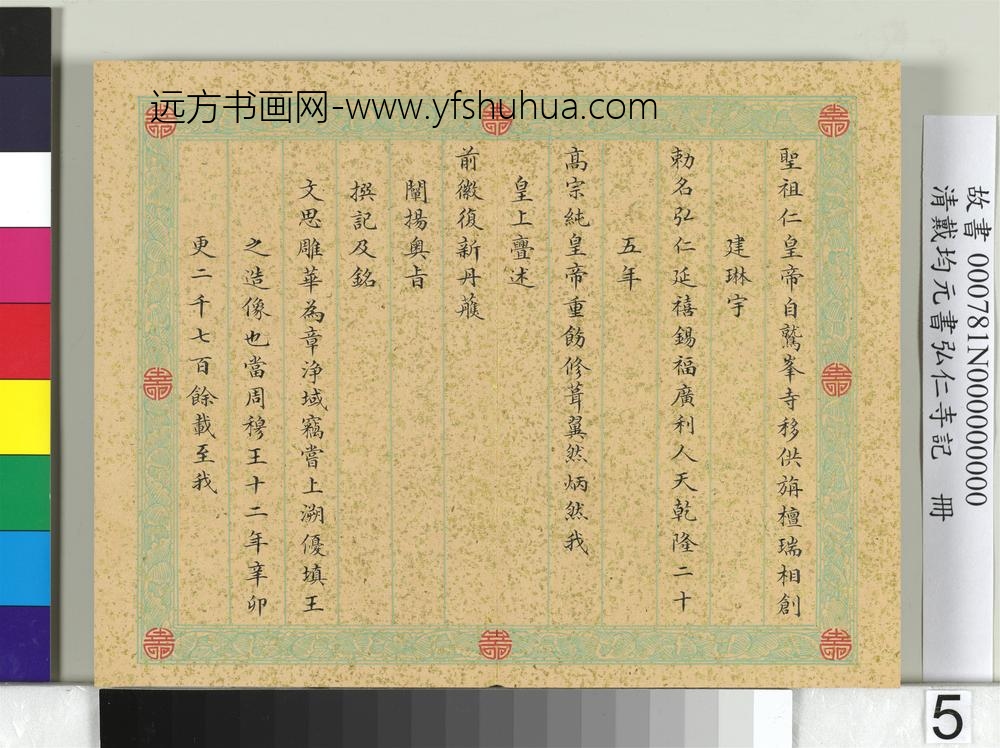 远方书画网-www.yfshuhua.com
聖祖仁皇帝自鷲峯寺移供旃檀瑞相創
建琳宇
勅名弘仁延禧錫福廣利人天乾隆二十
五年
高宗純皇帝重飭修葺翼然炳然我
皇上亹述
前徽復新丹雘
闡揚奧旨
撰記及銘
文思雕華為章淨域竊嘗上溯優填王
之造像也當周穆王十二年辛卯
更二千七百餘載至我
故書 000781N000000000
清戴均元書弘仁寺記 冊
5